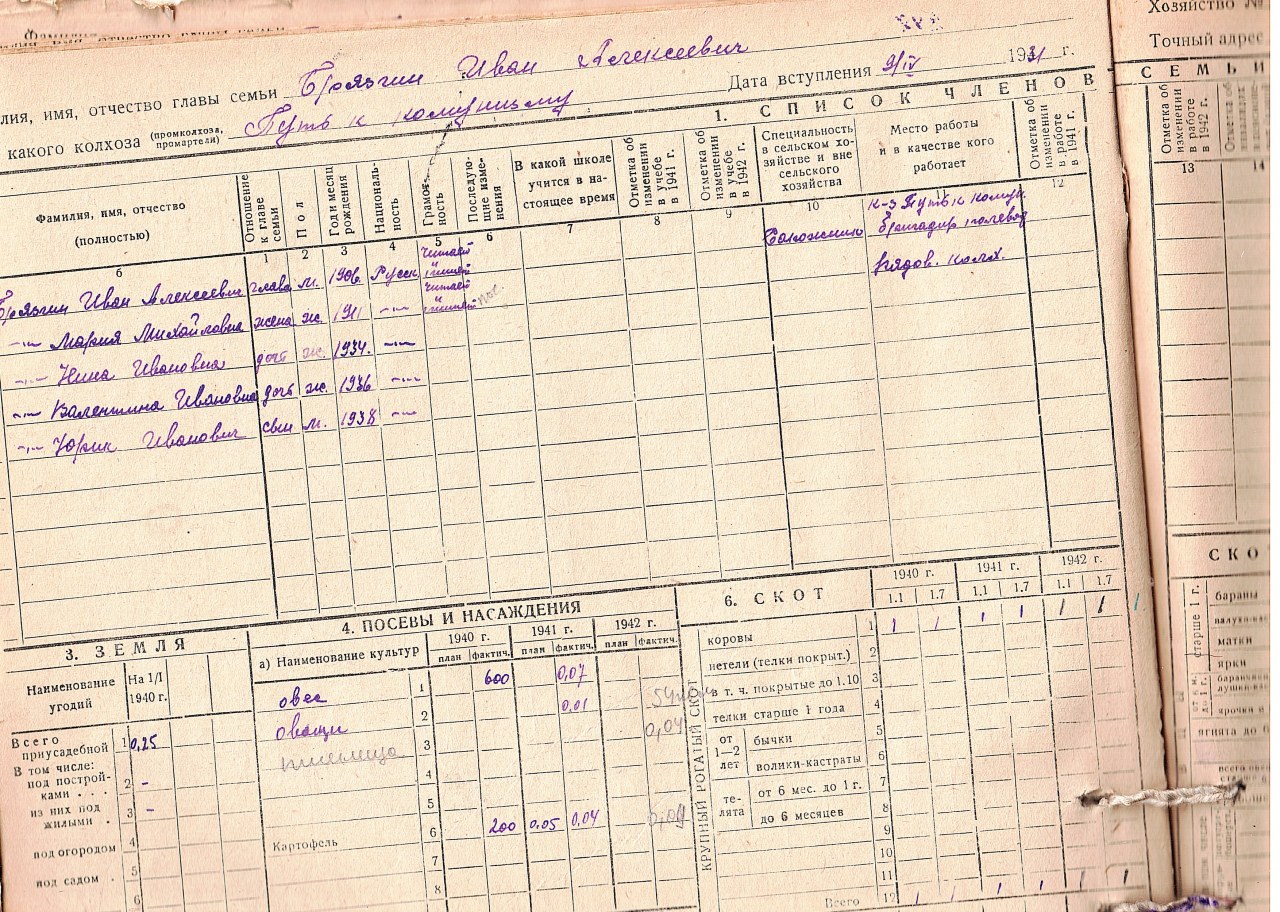 лия, имя, отчество главы семьи Брязгин Иван Алексеевич
Дата вступления 9/IV 1931 г.
какого колхоза (промколхоза, промартели) Путь к комунизму
1. СПИСОК ЧЛЕНОВ
Фамилия, имя, отчество (полностью)
Отношение к главе семьи
Пол
Год и месяц рождения
Националь-ность
Грамот-ность
Последую-щие изме-нения
В какой школе учится в на-стоящее время
Отметка об изменении в учебе в 1941 г.
Отметка об изменении в учебе в 1942 г.
Специальность в сельском хо-зяйстве и вне сельского хозяйства
Место работы и в качестве кого работает
Отметка об изменении в работе в 1941 г.
б 1 2 3 4 5 6 7 8 9 10 11 12
Брязгин Иван Алексеевич глава м. 1906. Русск читает
к-з Путь к комун. бригадир полевод
–〃– Мария Михайловна жена ж. 1911 –〃– читает
рядов. колх.
–〃– Нина Ивановна дочь ж. 1934. –〃–
–〃– Валентина Ивановна дочь ж. 1936 –〃–
–〃– Юрик Иванович сын м. 1938 –〃–
3. ЗЕМЛЯ
Наименование угодий
На 1/I 1940 г.
Всего приусадебной 1 0,25
В том числе:
под построй-ками . . . 2 -
из них под жилыми . 3 -
под огородом 4
под садом . 5
6
4. ПОСЕВЫ И НАСАЖДЕНИЯ
а) Наименование культур
1940 г. 1941 г. 1942 г.
план фактич. план фактич. план фактич.
овес 1 600 0,07
овощи 2 0,01
пшеница 3 0,04
4
5
Картофель 6 200 0,05 0,04 0,04
7
8
6. СКОТ
1940 г. 1941 г. 1942 г.
1.1 1.7 1.1 1.7 1.1 1.7
КРУПНЫЙ РОГАТЫЙ СКОТ
коровы 1 1 1 1 1 1 1
нетели (телки покрыт.) 2
в т. ч. покрытые до 1.10 3
телки старше 1 года 4
от 1—2 лет
бычки 5
волики-кастраты 6
те-лята
от 6 мес. до 1 г. 7
до 6 месяцев 8
9
10
11
Всего 12 1 1 1 1 1 1
Хозяйство №
Точный адрес
СЕМЬИ
Отметка об изменении в работе в 1942 г.
13 14
СКО
старше 1 г.
бараны
матки
ярки